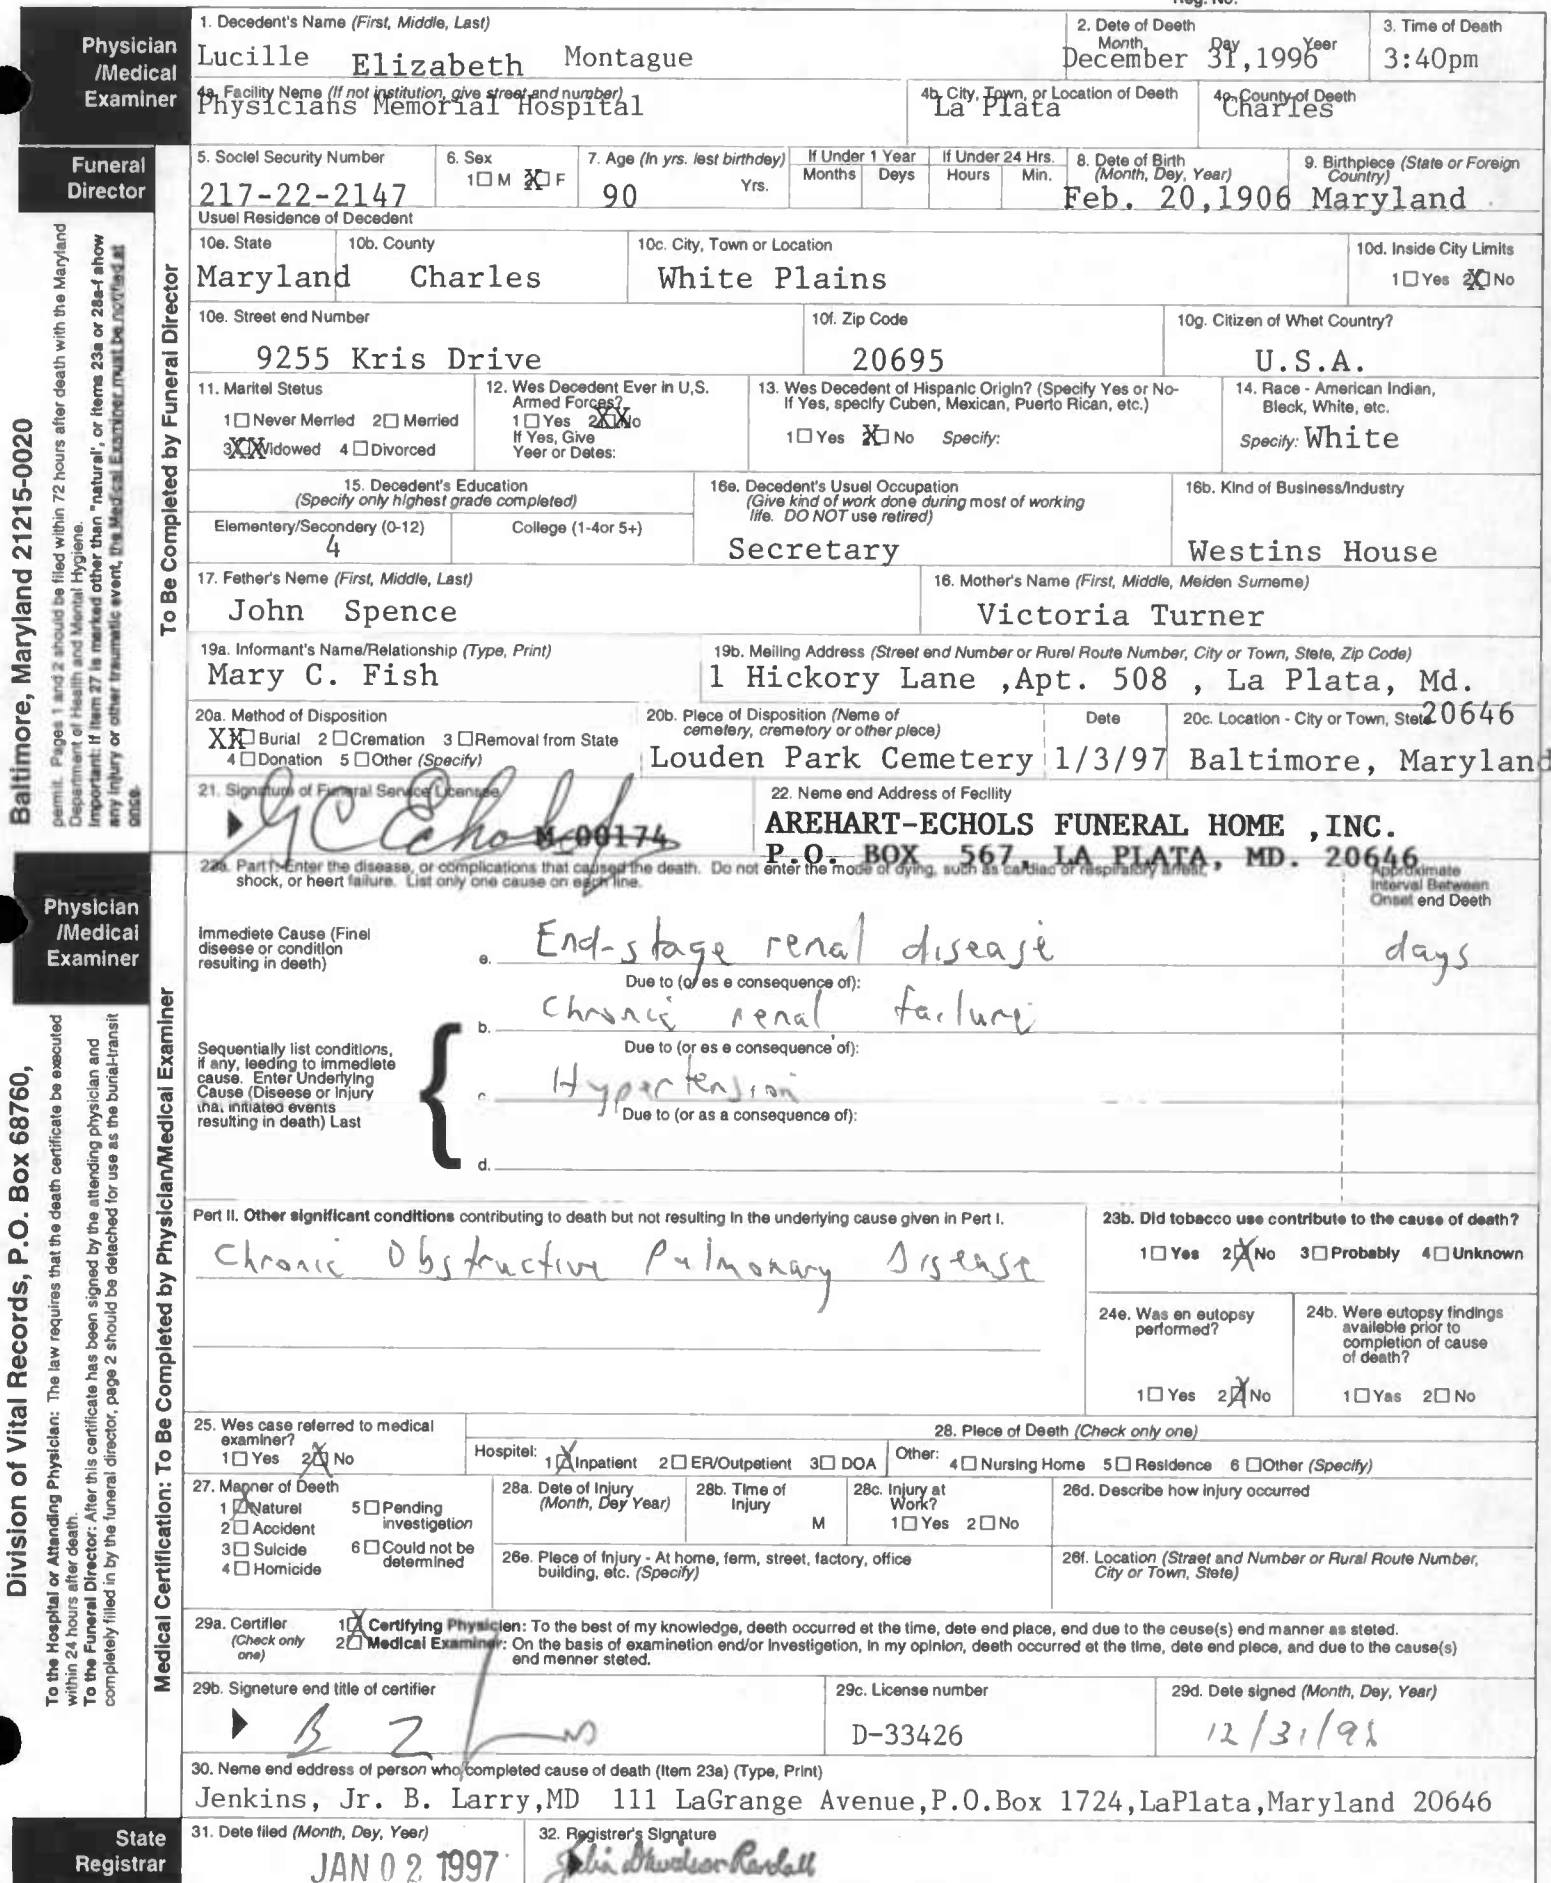 Reg. No.
Physician /Medical Examiner
1. Decedent's Name (First, Middle, Last)
Lucille Elizabeth Montague
2. Dete of Deeth
Month Day Year
December 31,1996
3. Time of Death
3:40pm
4a. Facility Name (If not institution, give street and number)
Physicians Memorial Hospital
4b. City, Town, or Location of Deeth
La Plata
4c. County of Deeth
Charles
Funeral Director
5. Sociel Security Number
217-22-2147
6. Sex
1☐ M X☐ F
7. Age (In yrs. lest birthdey)
90 Yrs.
If Under 1 Year
Months Deys
If Under 24 Hrs.
Hours Min.
8. Dete of Birth
(Month, Dey, Year)
Feb. 20,1906
9. Birthpiece (State or Foreign
Country)
Maryland
Usuel Residence of Decedent
10e. State
Maryland
10b. County
Charles
10c. City, Town or Location
White Plains
10d. Inside City Limits
1☐ Yes 2X☐ No
10e. Street end Number
9255 Kris Drive
10f. Zip Code
20695
10g. Citizen of Whet Country?
U.S.A.
11. Maritel Stetus
1☐ Never Merried 2☐ Merried
3XX Widowed 4☐ Divorced
12. Wes Decedent Ever in U,S.
Armed Forces?
1☐ Yes 2XX No
If Yes, Give
Yeer or Detes:
13. Wes Decedent of Hispanic Origin? (Specify Yes or No-
If Yes, specify Cuben, Mexican, Puerto Rican, etc.)
1☐ Yes X☐ No Specify:
14. Race - American Indian,
Bleck, White, etc.
Specify: White
15. Decedent's Education
(Specify only highest grade completed)
Elementery/Secondery (0-12)
4
College (1-4or 5+)
16e. Decedent's Usuel Occupation
(Give kind of work done during most of working
life. DO NOT use retired)
Secretary
16b. Kind of Business/Industry
Westins House
17. Fether's Neme (First, Middle, Last)
John Spence
16. Mother's Name (First, Middle, Meiden Surneme)
Victoria Turner
19a. Informant's Name/Relationship (Type, Print)
Mary C. Fish
19b. Meiling Address (Street end Number or Rurel Route Number, City or Town, Stete, Zip Code)
1 Hickory Lane ,Apt. 508 , La Plata, Md.
20646
20a. Method of Disposition
XX☐ Burial 2☐ Cremation 3☐ Removal from State
4☐ Donation 5☐ Other (Specify)
20b. Plece of Disposition (Neme of
cemetery, cremetory or other piece)
Louden Park Cemetery
Dete
1/3/97
20c. Location - City or Town, Stete
Baltimore, Maryland
21. Signature of Funeral Service Licensee
GC Echols M-00174
22. Neme end Address of Fecility
AREHART-ECHOLS FUNERAL HOME ,INC.
P.O. BOX 567, LA PLATA, MD. 20646
To Be Completed by Funeral Director
Baltimore, Maryland 21215-0020
permit. Pages 1 and 2 should be filed within 72 hours after death with the Maryland
Department of Health and Mental Hygiene.
Important: If Item 27 is marked other than "natural", or items 23a or 28a-f show
any injury or other traumatic event, the Medical Examiner must be notified at
once.
Physician /Medical Examiner
23a. Part I: Enter the disease, or complications that caused the death. Do not enter the mode of dying, such as cardiac or respiratory arrest,
shock, or heert failure. List only one cause on each line.
Approximate
Interval Between
Onset end Deeth
Immediete Cause (Finel
diseese or condition
resulting in deeth)
e. End-stage renal disease days
Due to (or es e consequence of):
b. Chronic renal failure
Due to (or es e consequence of):
c. Hypertension
Due to (or as a consequence of):
d.
Sequentially list conditions,
if any, leeding to immediete
cause. Enter Underlying
Cause (Diseese or Injury
that initiated events
resulting in death) Last
Part II. Other significant conditions contributing to death but not resulting in the underlying cause given in Part I.
Chronic Obstructive Pulmonary Disease
23b. Did tobacco use contribute to the cause of death?
1☐ Yes 2X No 3☐ Probably 4☐ Unknown
24e. Was en eutopsy
performed?
1☐ Yes 2X No
24b. Were eutopsy findings
availeble prior to
completion of cause
of death?
1☐ Yas 2☐ No
25. Wes case referred to medical
examiner?
1☐ Yes 2X No
28. Plece of Deeth (Check only one)
Hospitel: 1X Inpatient 2☐ ER/Outpetient 3☐ DOA Other: 4☐ Nursing Home 5☐ Residence 6☐ Other (Specify)
27. Manner of Deeth
1X Naturel
2☐ Accident
3☐ Suicide
4☐ Homicide
5☐ Pending
investigetion
6☐ Could not be
determined
28a. Dete of Injury
(Month, Dey Year)
28b. Time of
Injury
M
28c. Injury at
Work?
1☐ Yes 2☐ No
26d. Describe how injury occurred
26e. Plece of Injury - At home, ferm, street, factory, office
building, etc. (Specify)
26f. Location (Straet and Number or Rural Route Number,
City or Town, Stete)
29a. Certifier
(Check only
one)
1X Certifying Physicien: To the best of my knowledge, deeth occurred et the time, dete end place, end due to the ceuse(s) end manner as steted.
2☐ Medical Examiner: On the basis of examinetion end/or Investigetion, in my opinion, deeth occurred et the time, dete end plece, and due to the cause(s)
end menner steted.
29b. Signeture end title of certifier
29c. License number
D-33426
29d. Dete signed (Month, Dey, Year)
12/31/96
30. Neme end eddress of person who completed cause of death (Item 23a) (Type, Print)
Jenkins, Jr. B. Larry,MD 111 LaGrange Avenue,P.O.Box 1724,LaPlata,Maryland 20646
Medical Certification: To Be Completed by Physician/Medical Examiner
Division of Vital Records, P.O. Box 68760,
To the Hospital or Attanding Physician: The law requires that the death certificate be executed
within 24 hours after death.
To the Funeral Director: After this certificate has been signed by the attending physician and
completely filled in by the funeral director, page 2 should be detached for use as the burial-transit
State Registrar
31. Dete filed (Month, Dey, Yeer)
JAN 02 1997
32. Registrer's Signature
Julia Davidson-Randall